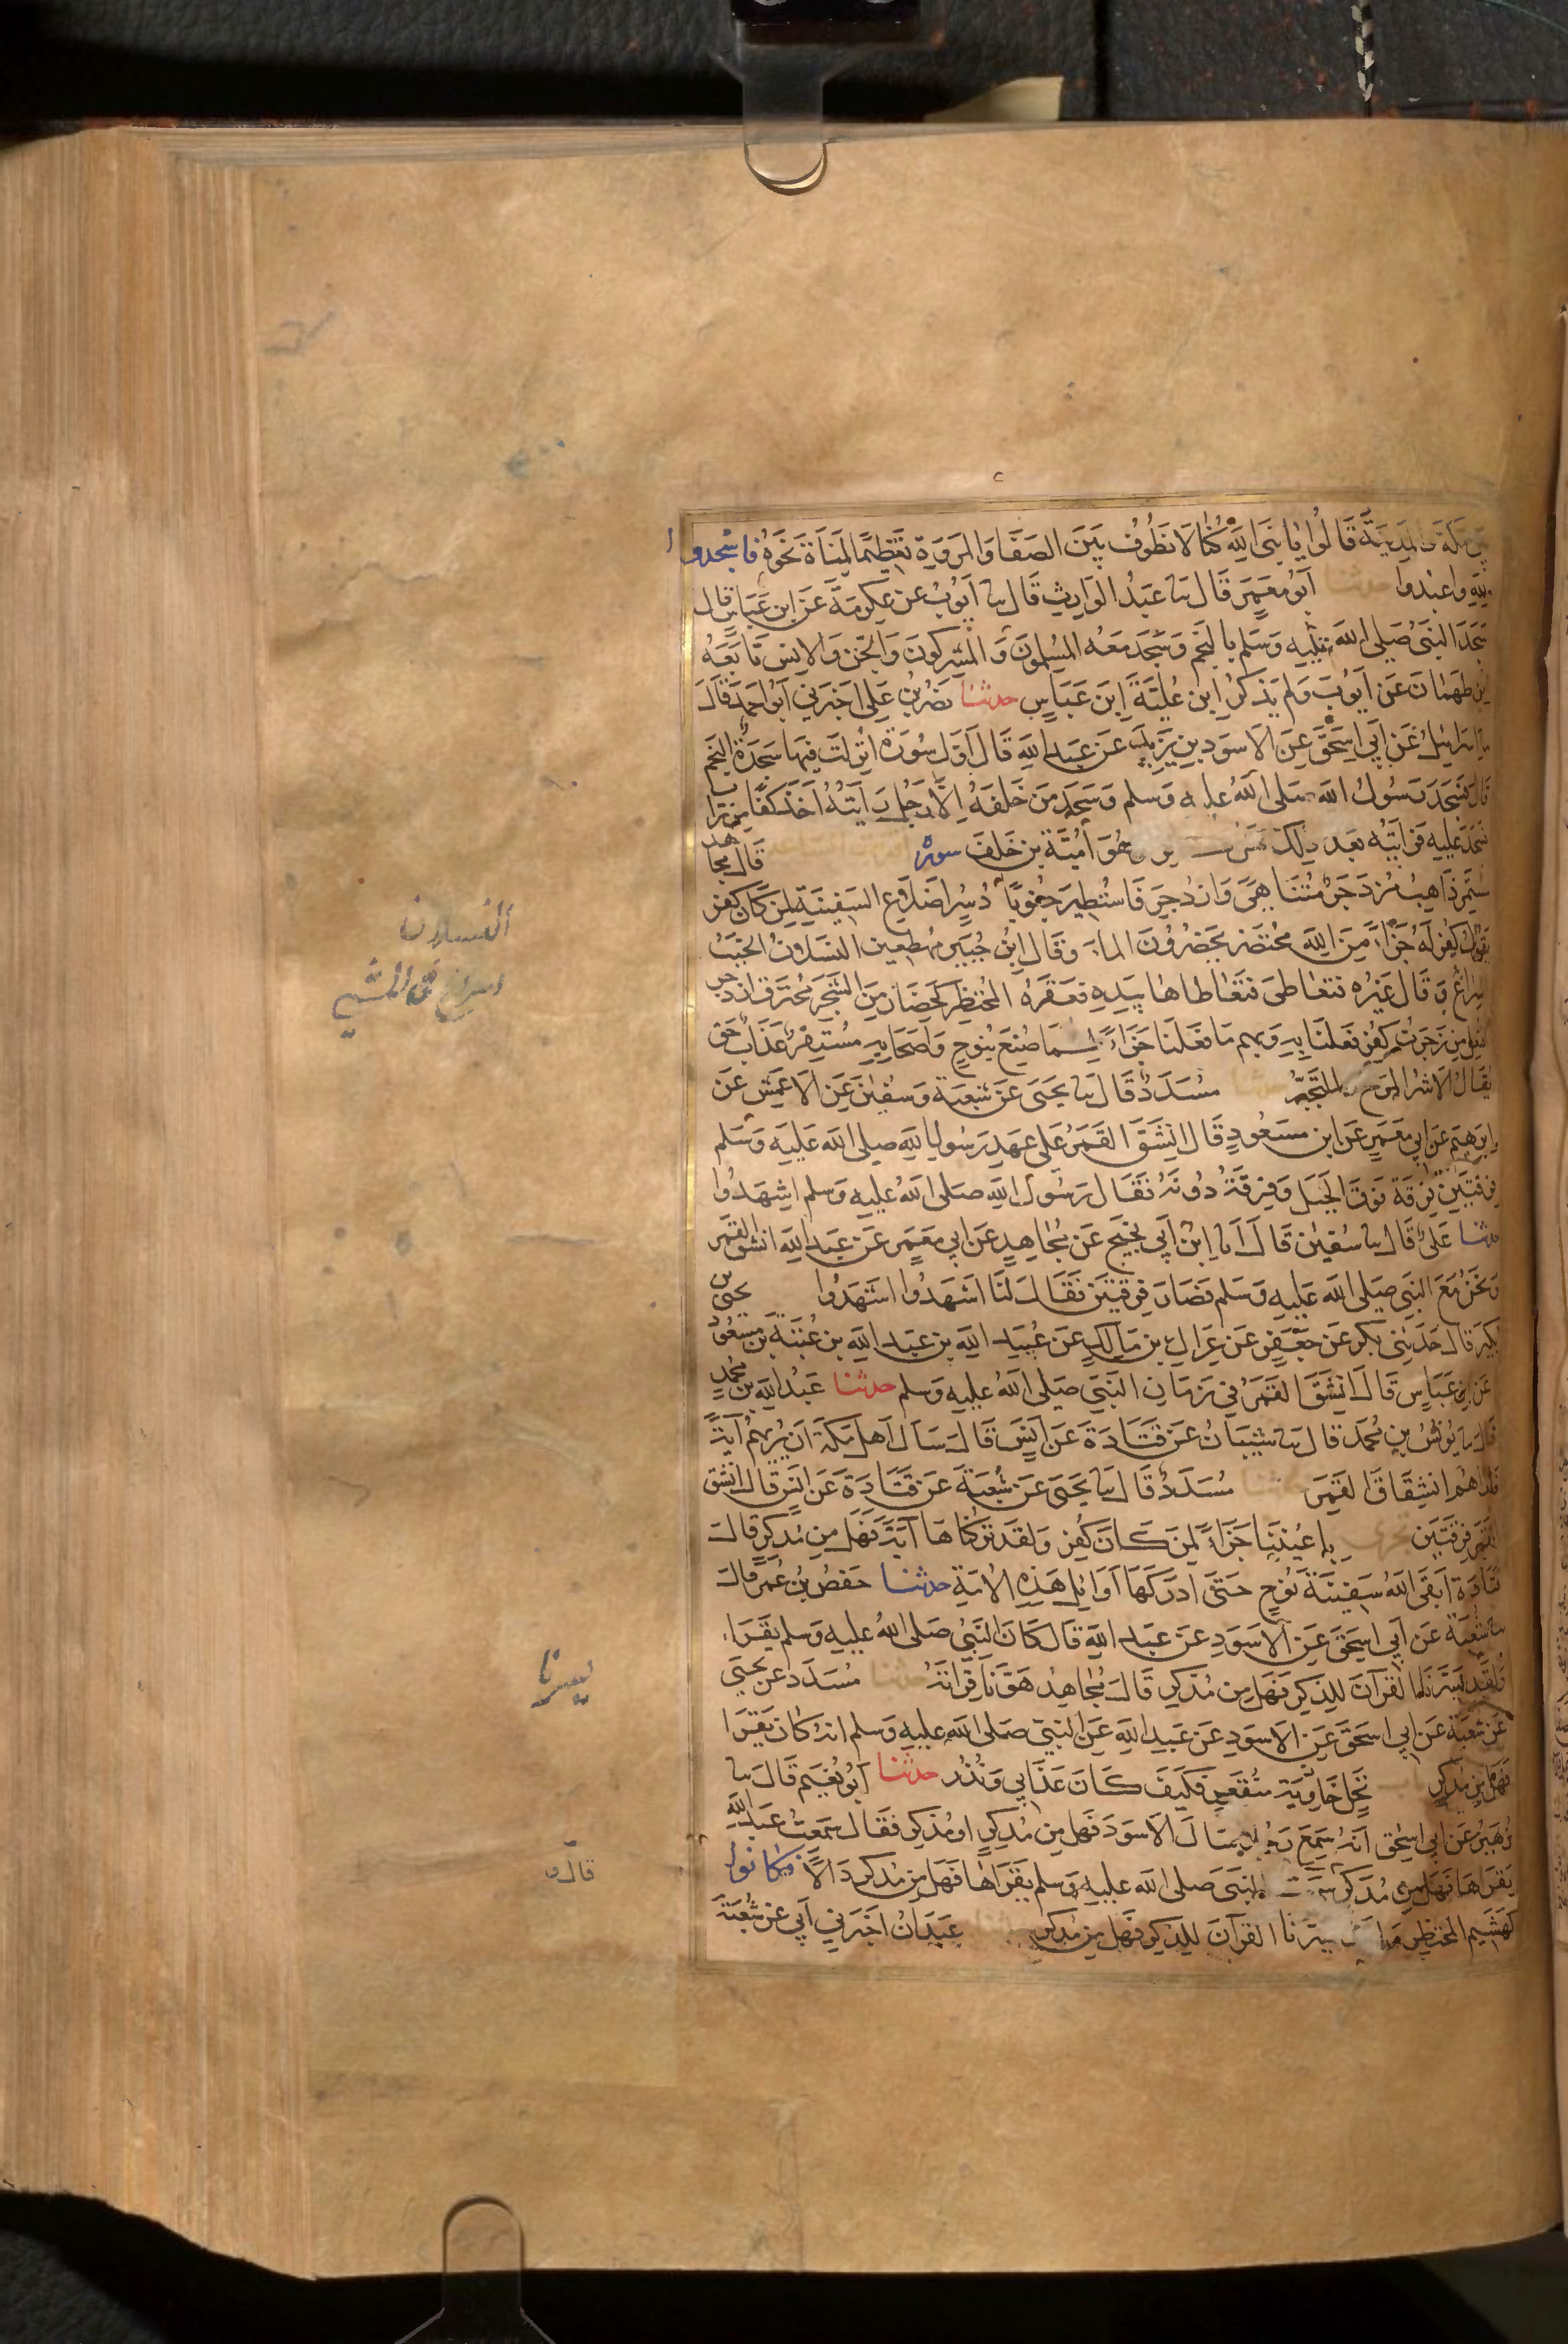 بين مكة والمدينة قالوا يا نبي الله كنا لا نطوف بين الصفا والمروة تعظيما لمناة نحوه فاسجدوا
لله واعبدوا حدثنا أبو معمر قال ثنا عبد الوارث قال ثنا أيوب عن عكرمة عن ابن عباس قال
سجد النبي صلى الله عليه وسلم بالنجم وسجد معه المسلمون والمشركون والجن والانس تابعه
ابن طهمان عن أيوب ولم يذكر ابن علية ابن عباس حدثنا نصر بن علي اخبرني أبو احمد قال
ثنا اسرائيل عن أبي اسحق عن الاسود بن يزيد عن عبد الله قال أول سورة انزلت فيها سجدة النجم
قال فسجد رسول الله صلى الله عليه وسلم وسجد من خلفه الا رجل رأيته أخذ كفا من تراب
فسجد عليه فرأيته بعد ذلك وهو أمية بن خلف سورة قال مجاهد
مستمر ذاهب مزدجر متناهى وازدجر فاستطير جنونا دسر اضلاع السفينة لمن كان كفر
يقول كفر له جزاء من الله محتضر يحضرون الماء وقال ابن جبير مهطعين النسلان الخبب
السراع وقال غيره فتعاطى فتعاطاها بيده فعقره المحتظر كحضار من الشجر محترق ازدجر
افتعل من زجرت كفر فعلنا به وبهم ما فعلنا جزاء لما صنع بنوح واصحابه مستقر عذاب حق
يقال الاشر المرح والتجبر مسدد قال ثنا يحيى عن شعبة وسفين عن الاعمش عن
ابرهيم عن ابي معمر عن ابن مسعود قال انشق القمر على عهد رسول الله صلى الله عليه وسلم
فرقتين فرقة فوق الجبل وفرقة دونه فقال رسول الله صلى الله عليه وسلم اشهدوا
حدثنا علي قال ثنا سفين قال أنا ابن أبي نجيح عن مجاهد عن ابي معمر عن عبد الله انشق القمر
ونحن مع النبي صلى الله عليه وسلم فصار فرقتين فقال لنا اشهدوا اشهدوا يحيى بن
بكير قال حدثني بكر عن جعفر عن عراك بن مالك عن عبيد الله بن عبد الله بن عتبة بن مسعود
عن ابن عباس قال انشق القمر في زمان النبي صلى الله عليه وسلم حدثنا عبد الله بن محمد
قال ثنا يونس بن محمد قال ثنا شيبان عن قتادة عن أنس قال سأل أهل مكة أن يريهم آية
فأراهم انشقاق القمر حدثنا مسدد قال ثنا يحيى عن شعبة عن قتادة عن انس قال انشق
القمر فرقتين تجرى باعيننا جزاء لمن كان كفر ولقد تركناها آية فهل من مدكر قال
قتادة أبقى الله سفينة نوح حتى ادركها أوائل هذه الامة حدثنا حفص بن عمر قال
ثنا شعبة عن أبي اسحق عن الاسود عن عبد الله قال كان النبي صلى الله عليه وسلم يقرأ
ولقد يسرنا القرآن للذكر فهل من مدكر قال مجاهد هونا قراته حدثنا مسدد عن يحيى
عن شعبة عن ابي اسحق عن الاسود عن عبد الله عن النبي صلى الله عليه وسلم انه كان يقرا
فهل من مدكر نخل خاوية منقعر فكيف كان عذابي ونذر حدثنا أبو نعيم قال ثنا
زهير عن ابي اسحق أنه سمع رجلا سال الاسود فهل من مدكر او مذكر فقال سمعت عبد الله
يقراها فهل من مدكر النبي صلى الله عليه وسلم يقراها فهل من مدكر دالا فكانوا
كهشيم المحتظر ولقد يسرنا القرآن للذكر فهل من مدكر عبدان اخبرني أبي عن شعبة
النسلان
يسرنا
قال